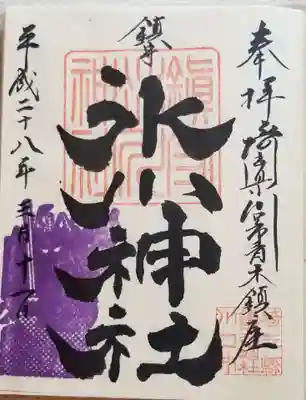 奉拝 埼玉県川口市青木鎮座
鎮守
氷川神社
平成二十八年三月十一日